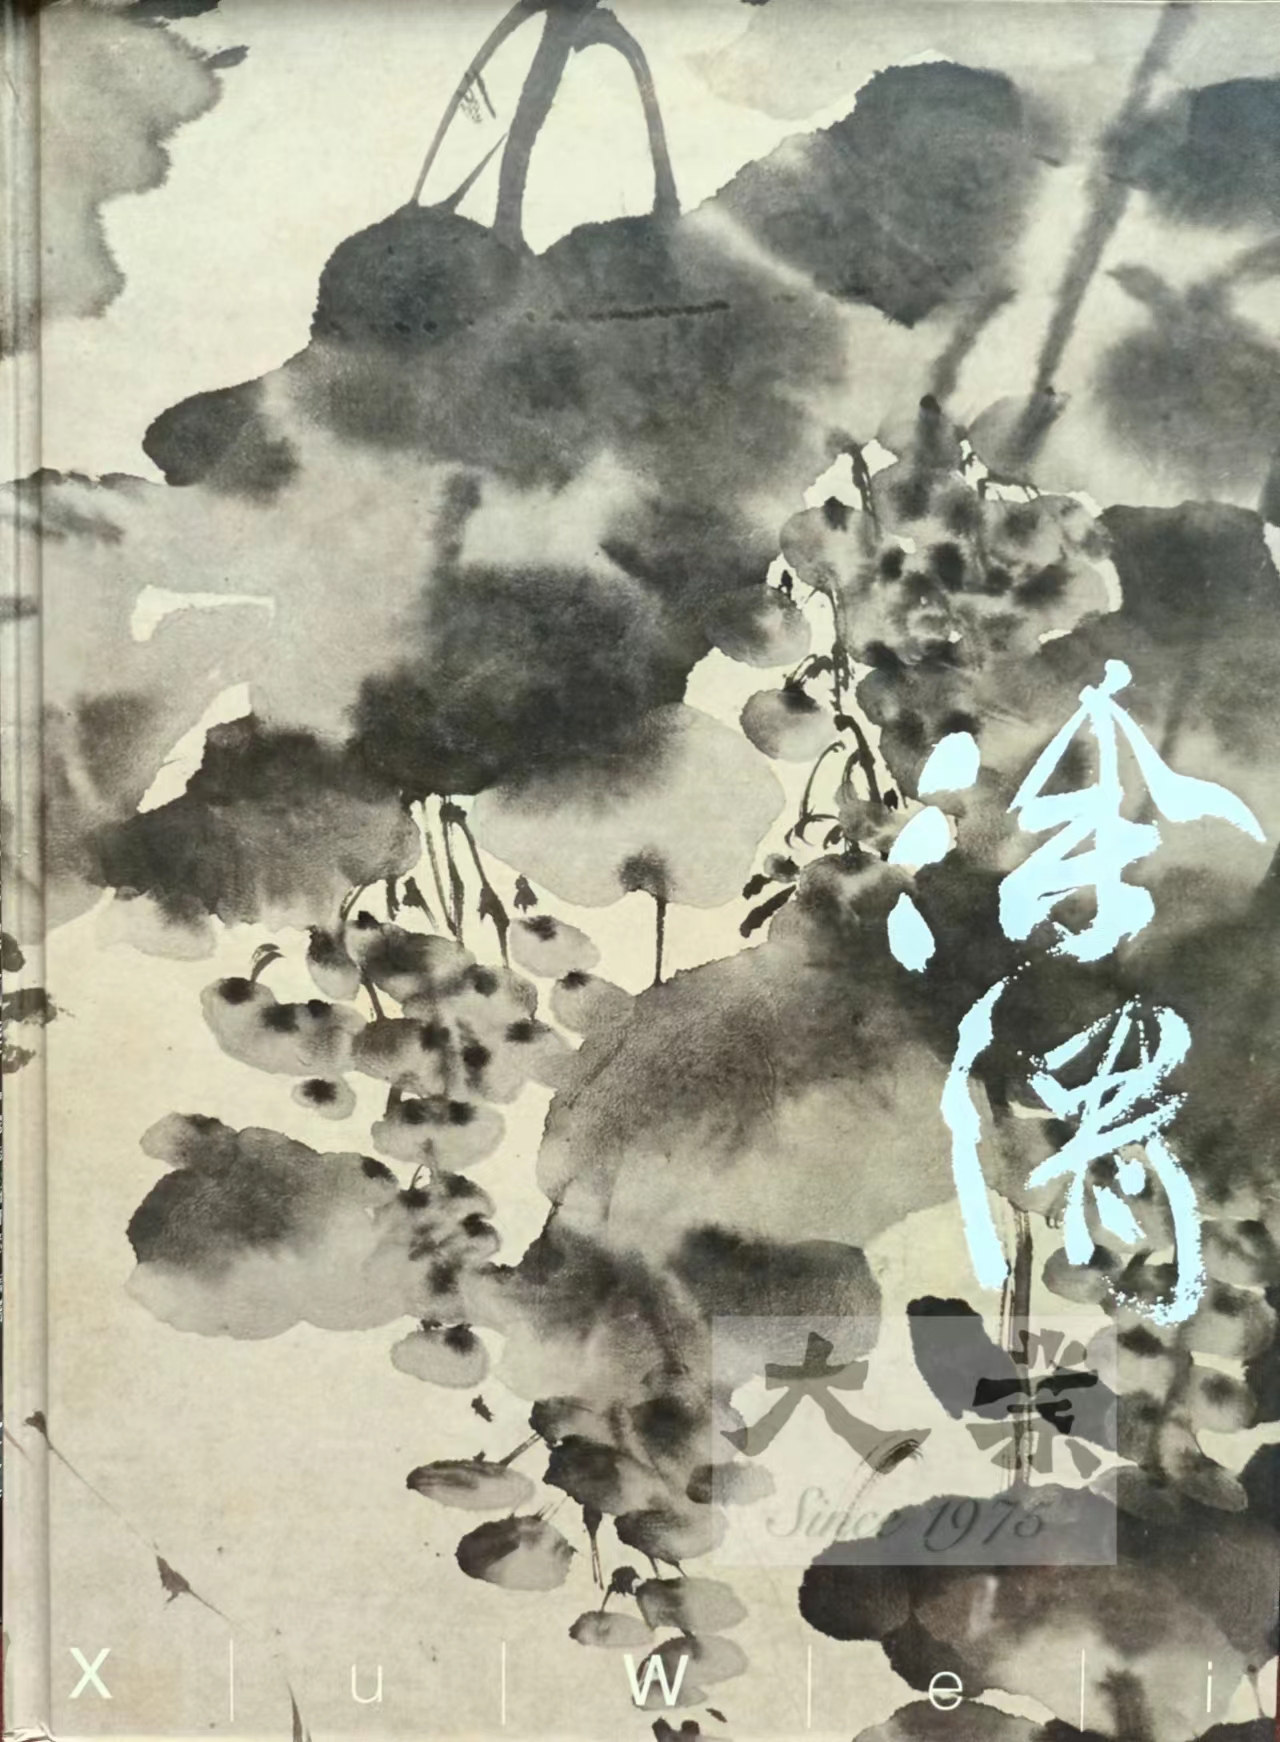 徐渭
大業
Since 1975
X | u | W | e | i